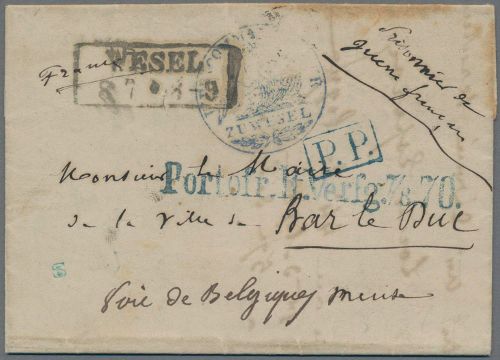 WESEL
8 7 8-9
Franco
ZU WESEL
Prisonnier de
guerre français
P.P.
Portofr. lt. Verfg. 7/8. 70.
Monsieur le Maire
de la ville de Bar le Duc
Voie de Belgique Meuse